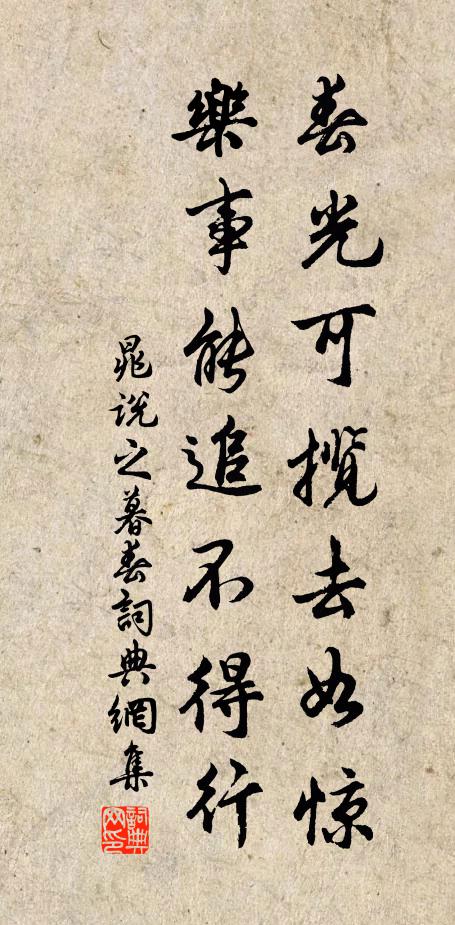 春光可攬去如惊
樂事能追不得行
晁说之暮春詞典網集
詞典网印